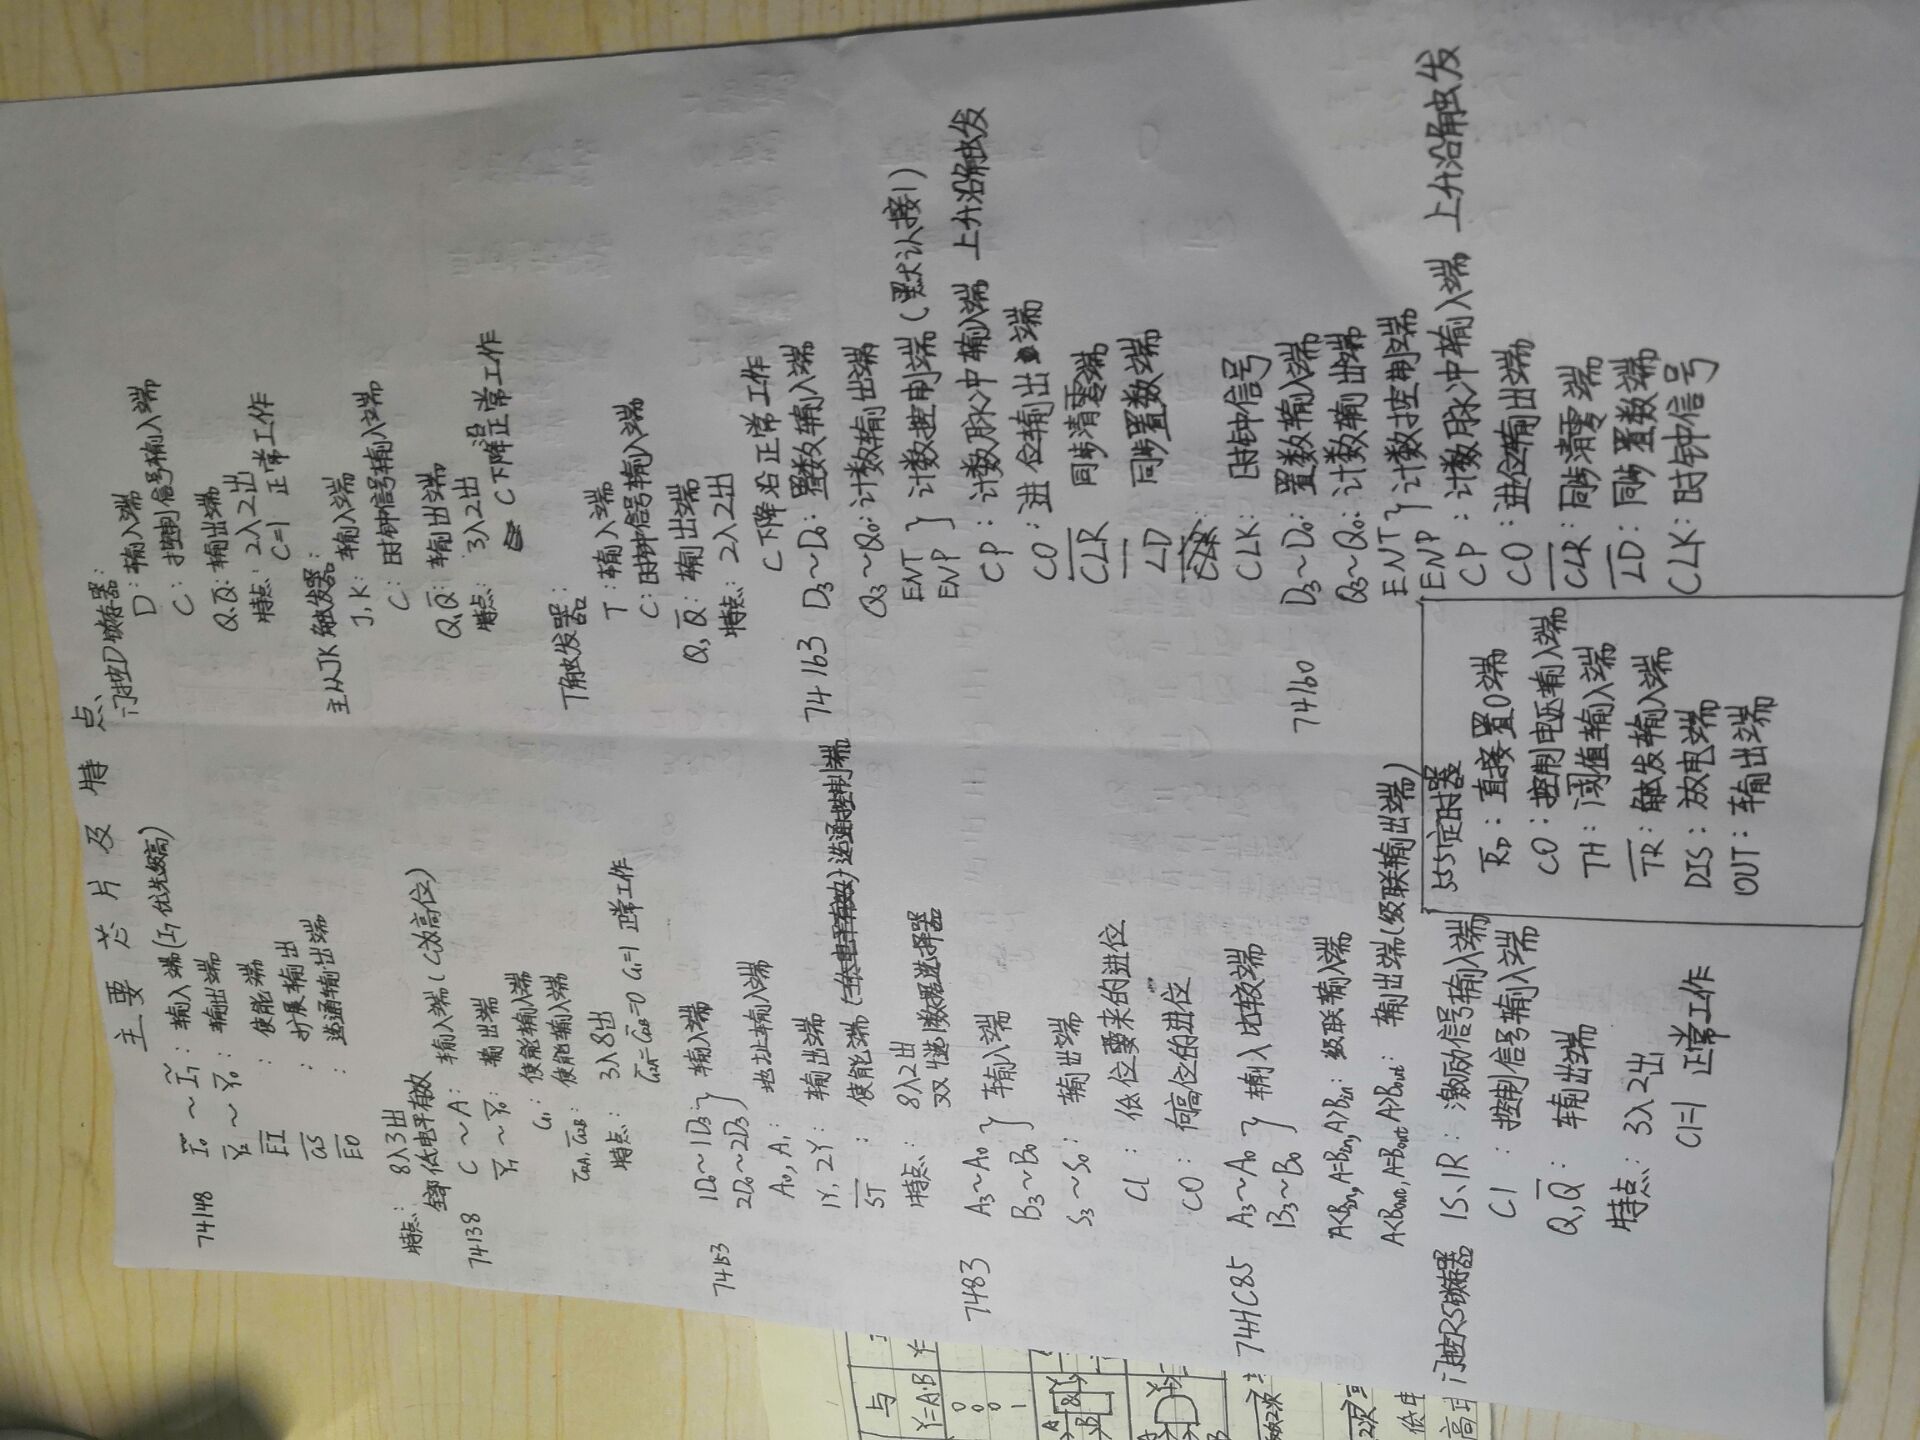 主要芯片及特点
74148 I̅₀～I̅₇：输入端(I₇优先级高)
Y̅₂～Y̅₀：输出端
E̅I̅：使能端
G̅S̅：扩展输出
E̅O̅：选通输出端
特点：8入3出
全部低电平有效
74138 C～A：输入端(C为高位)
Y̅₇～Y̅₀：输出端
G₁：使能输入端
G̅₂A, G̅₂B：使能输入端
特点：3入8出
G̅₂A=G̅₂B=0 G₁=1 正常工作
74153 1D₀～1D₃ } 输入端
2D₀～2D₃
A₀, A₁：地址输入端
1Y, 2Y：输出端
S̅T̅：使能端(低电平有效)选通控制端
特点：8入2出
双4选1数据选择器
7483 A₃～A₀ } 输入端
B₃～B₀
S₃～S₀：输出端
CI：低位要来的进位
CO：向高位的进位
74HC85 A₃～A₀ } 输入比较端
B₃～B₀
A<Bin, A=Bin, A>Bin：级联输入端
A<Bout, A=Bout A>Bout：输出端(级联输出端)
门控RS锁存器 1S、1R：激励信号输入端
C1：控制信号输入端
Q, Q̅：输出端
特点：3入2出
C1=1 正常工作
555定时器
R̅D：直接置0端
CO：控制电压输入端
TH：阈值输入端
T̅R̅：触发输入端
DIS：放电端
OUT：输出端
门控D锁存器：
D：输入端
C：控制信号输入端
Q、Q̅：输出端
特点：2入2出
C=1 正常工作
主从JK触发器：
J, K：输入端
C：时钟信号输入端
Q, Q̅：输出端
特点：3入2出
C下降沿正常工作
T触发器：
T：输入端
C：时钟信号输入端
Q, Q̅：输出端
特点：2入2出
C下降沿正常工作
74163 D₃～D₀：置数输入端
Q₃～Q₀：计数输出端
ENT } 计数控制端(默认接1)
ENP
CP：计数脉冲输入端 上升沿触发
CO：进位输出端
C̅L̅R̅ 同步清零端
L̅D̅ 同步置数端
C̅L̅R̅
CLK：时钟信号
74160 D₃～D₀：置数输入端
Q₃～Q₀：计数输出端
ENT } 计数控制端
ENP
CP：计数脉冲输入端 上升沿触发
CO：进位输出端
C̅L̅R̅：同步清零端
L̅D̅：同步置数端
CLK：时钟信号
与
Y=A·B
0
0
0
1
A
B
&
Y